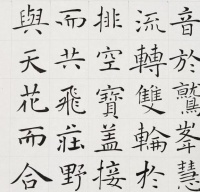 音於鷲峯慧
流轉雙輪於
排空寶蓋接
而共飛莊野
與天花而合